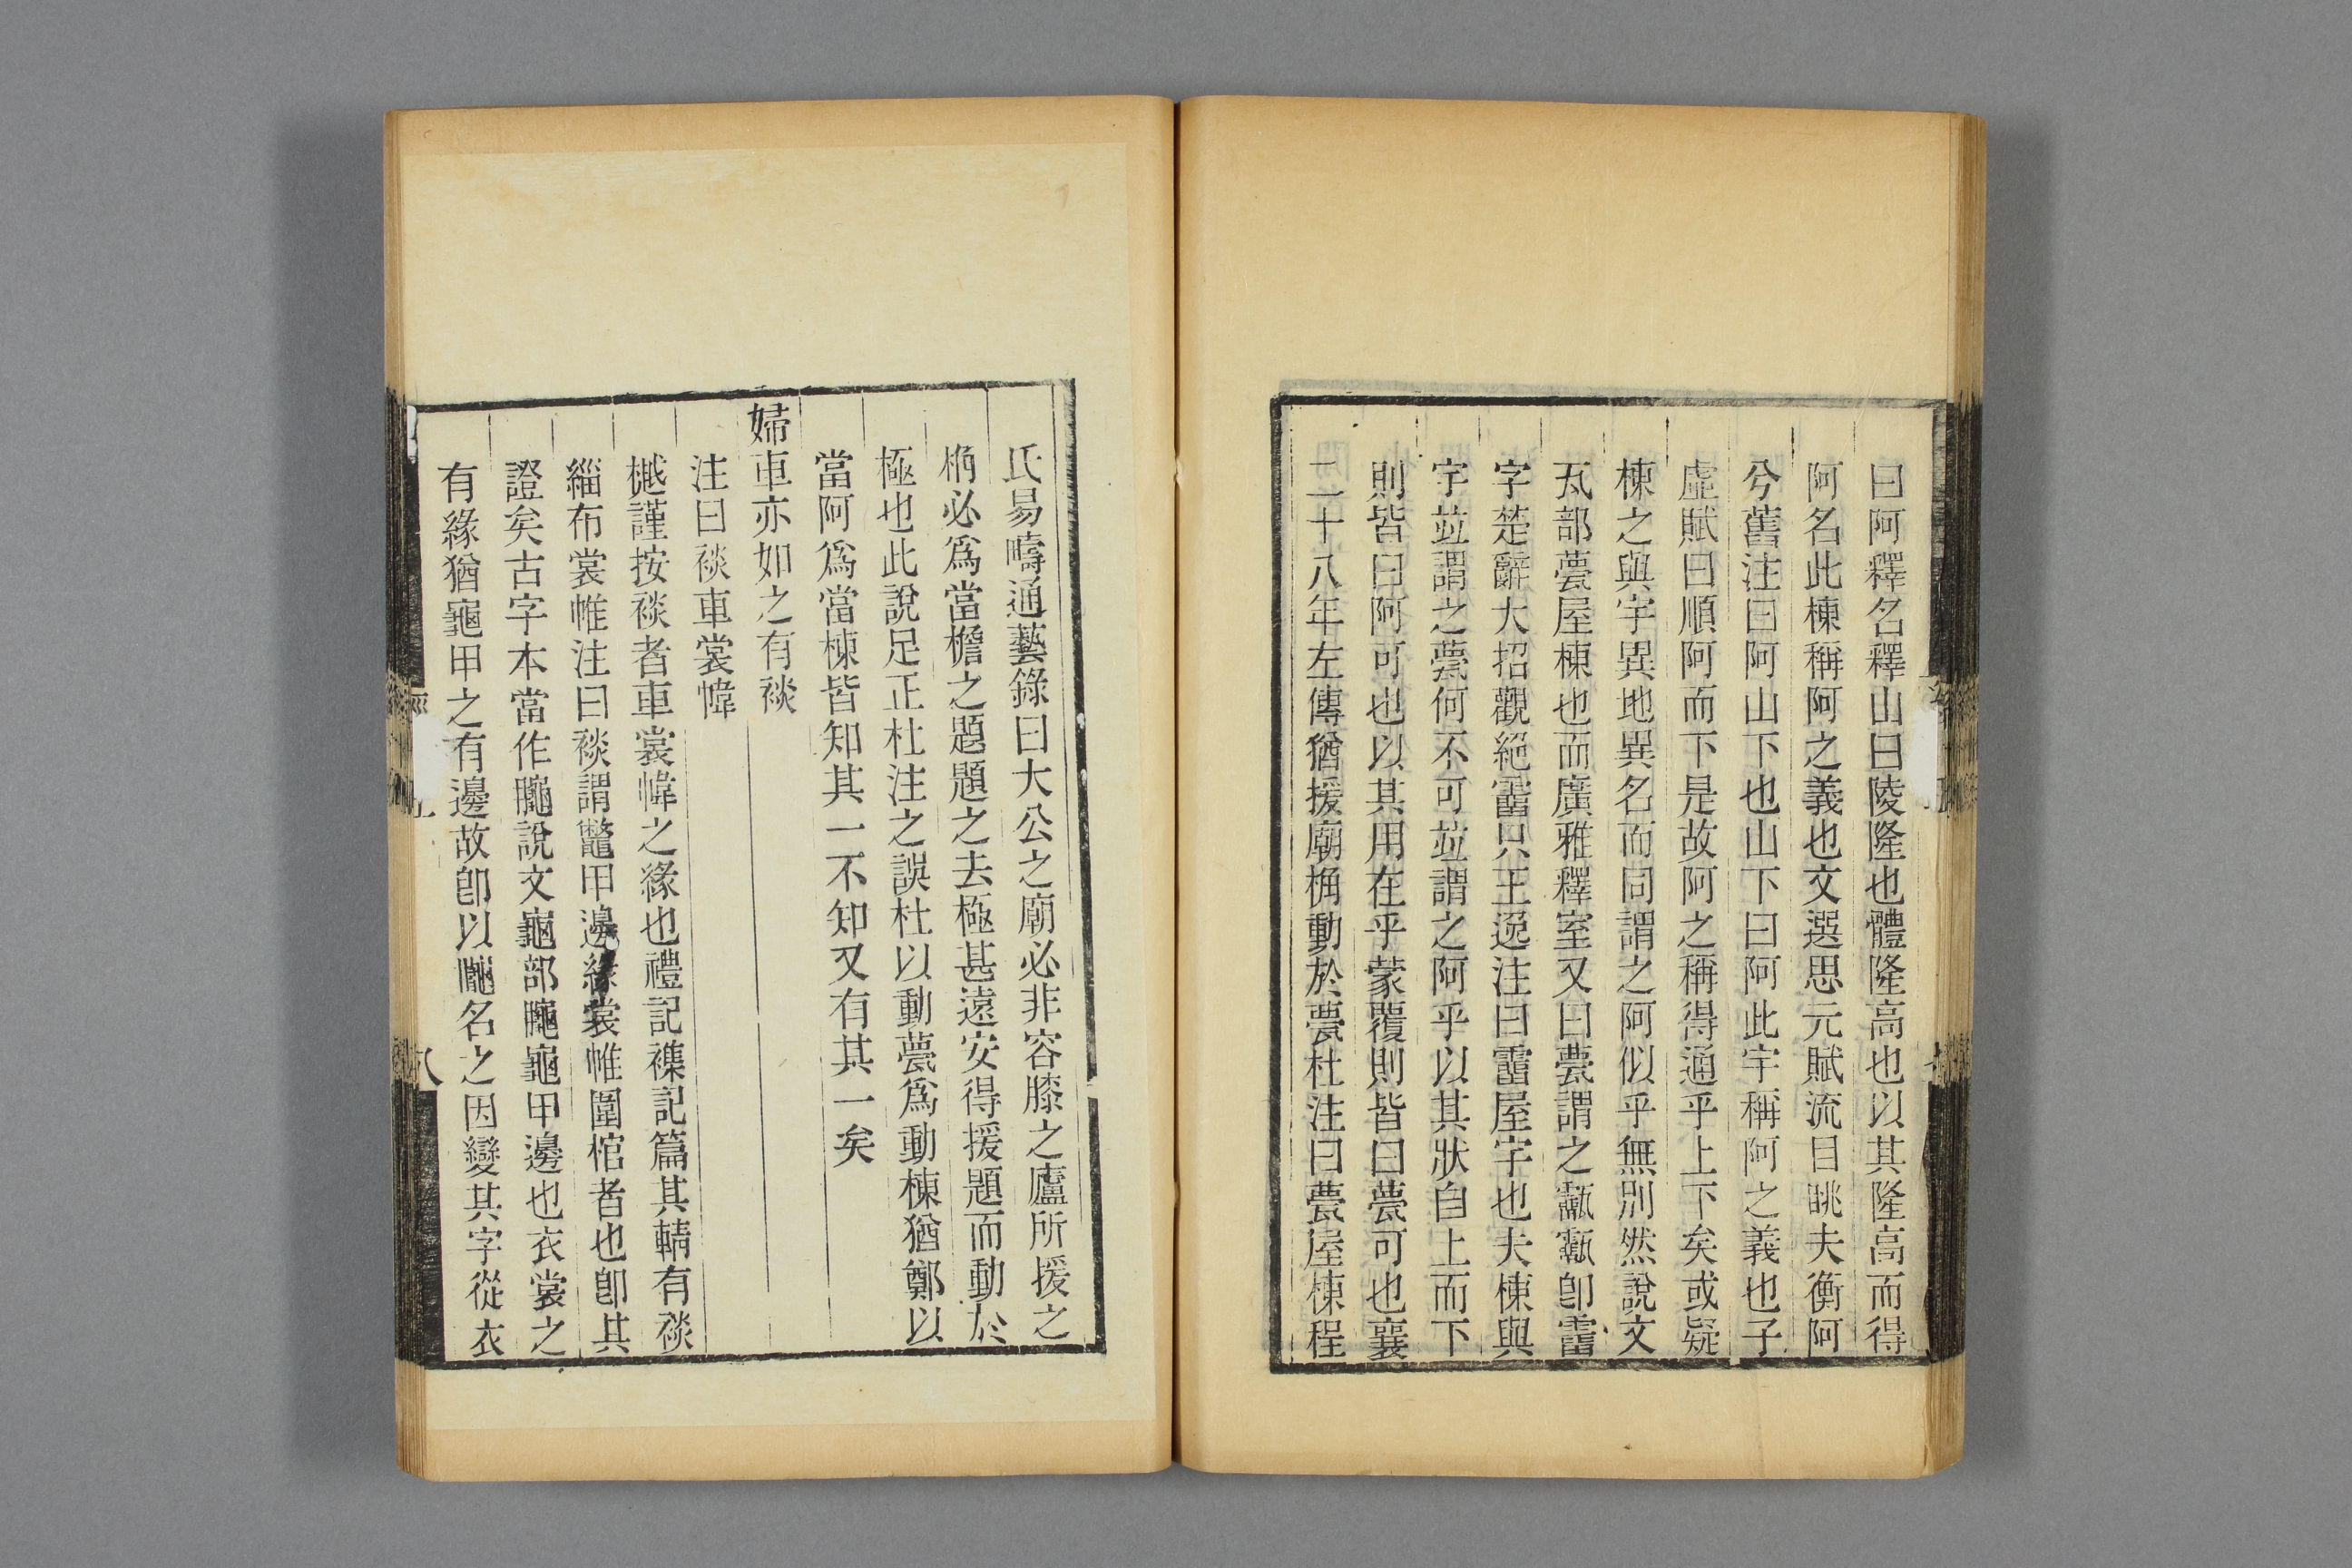 曰阿釋名釋山曰陵隆也體隆高也以其隆高而得
阿名此棟稱阿之義也文選思元賦流目眺夫衡阿
兮舊注曰阿山下也山下曰阿此宇稱阿之義也子
虛賦曰順阿而下是故阿之稱得通乎上下矣或疑
棟之與宇異地異名而同謂之阿似乎無別然說文
瓦部甍屋棟也而廣雅釋室又曰甍謂之甑甂卽霤
字楚辭大招觀絕霤只王逸注曰霤屋宇也夫棟與
宇竝謂之甍何不可竝謂之阿乎以其狀自上而下
則皆曰阿可也以其用在乎蒙覆則皆曰甍可也襄
二十八年左傳猶援廟桷動於甍杜注曰甍屋棟程
氏易疇通藝錄曰大公之廟必非容膝之廬所援之
桷必爲當檐之題題之去極甚遠安得援題而動於
極也此說足正杜注之誤杜以動甍爲動棟猶鄭以
當阿爲當棟皆知其一不知又有其一矣
婦車亦如之有裧
注曰裧車裳幃
樾謹按裧者車裳幃之緣也禮記襍記篇其輤有裧
緇布裳帷注曰裧謂鼈甲邊緣裳帷圍棺者也卽其
證矣古字本當作𪚮說文龜部𪚮龜甲邊也衣裳之
有緣猶龜甲之有邊故卽以𪚮名之因變其字從衣